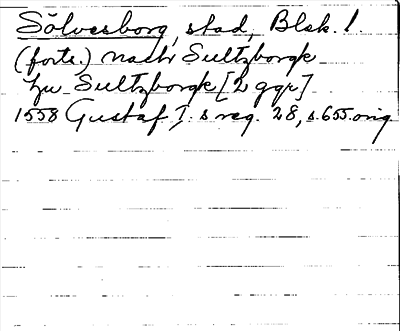 Sölvesborg, stad, Blek. l.
(forts.) nach Sultzborgk
zu Sultzborgk [2 ggr]
1558 Gustaf I:s reg. 28, s. 655. orig